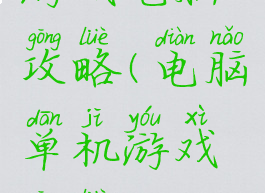 gōng lüè diàn nǎo
攻略(电脑
dān jī yóu xì
单机游戏